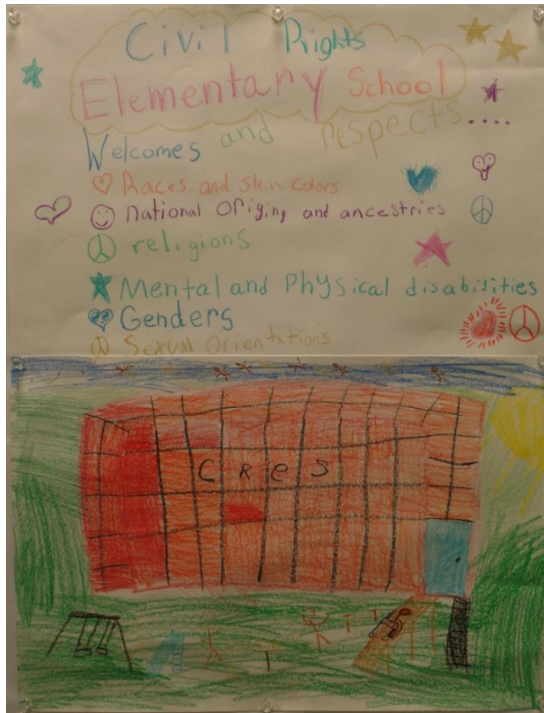 Civil Rights
Elementary School
Welcomes and respects....
Races and skin colors
national Origing and ancestries
religions
Mental and Physical disabilities
Genders
Sexual Orientations
CReS